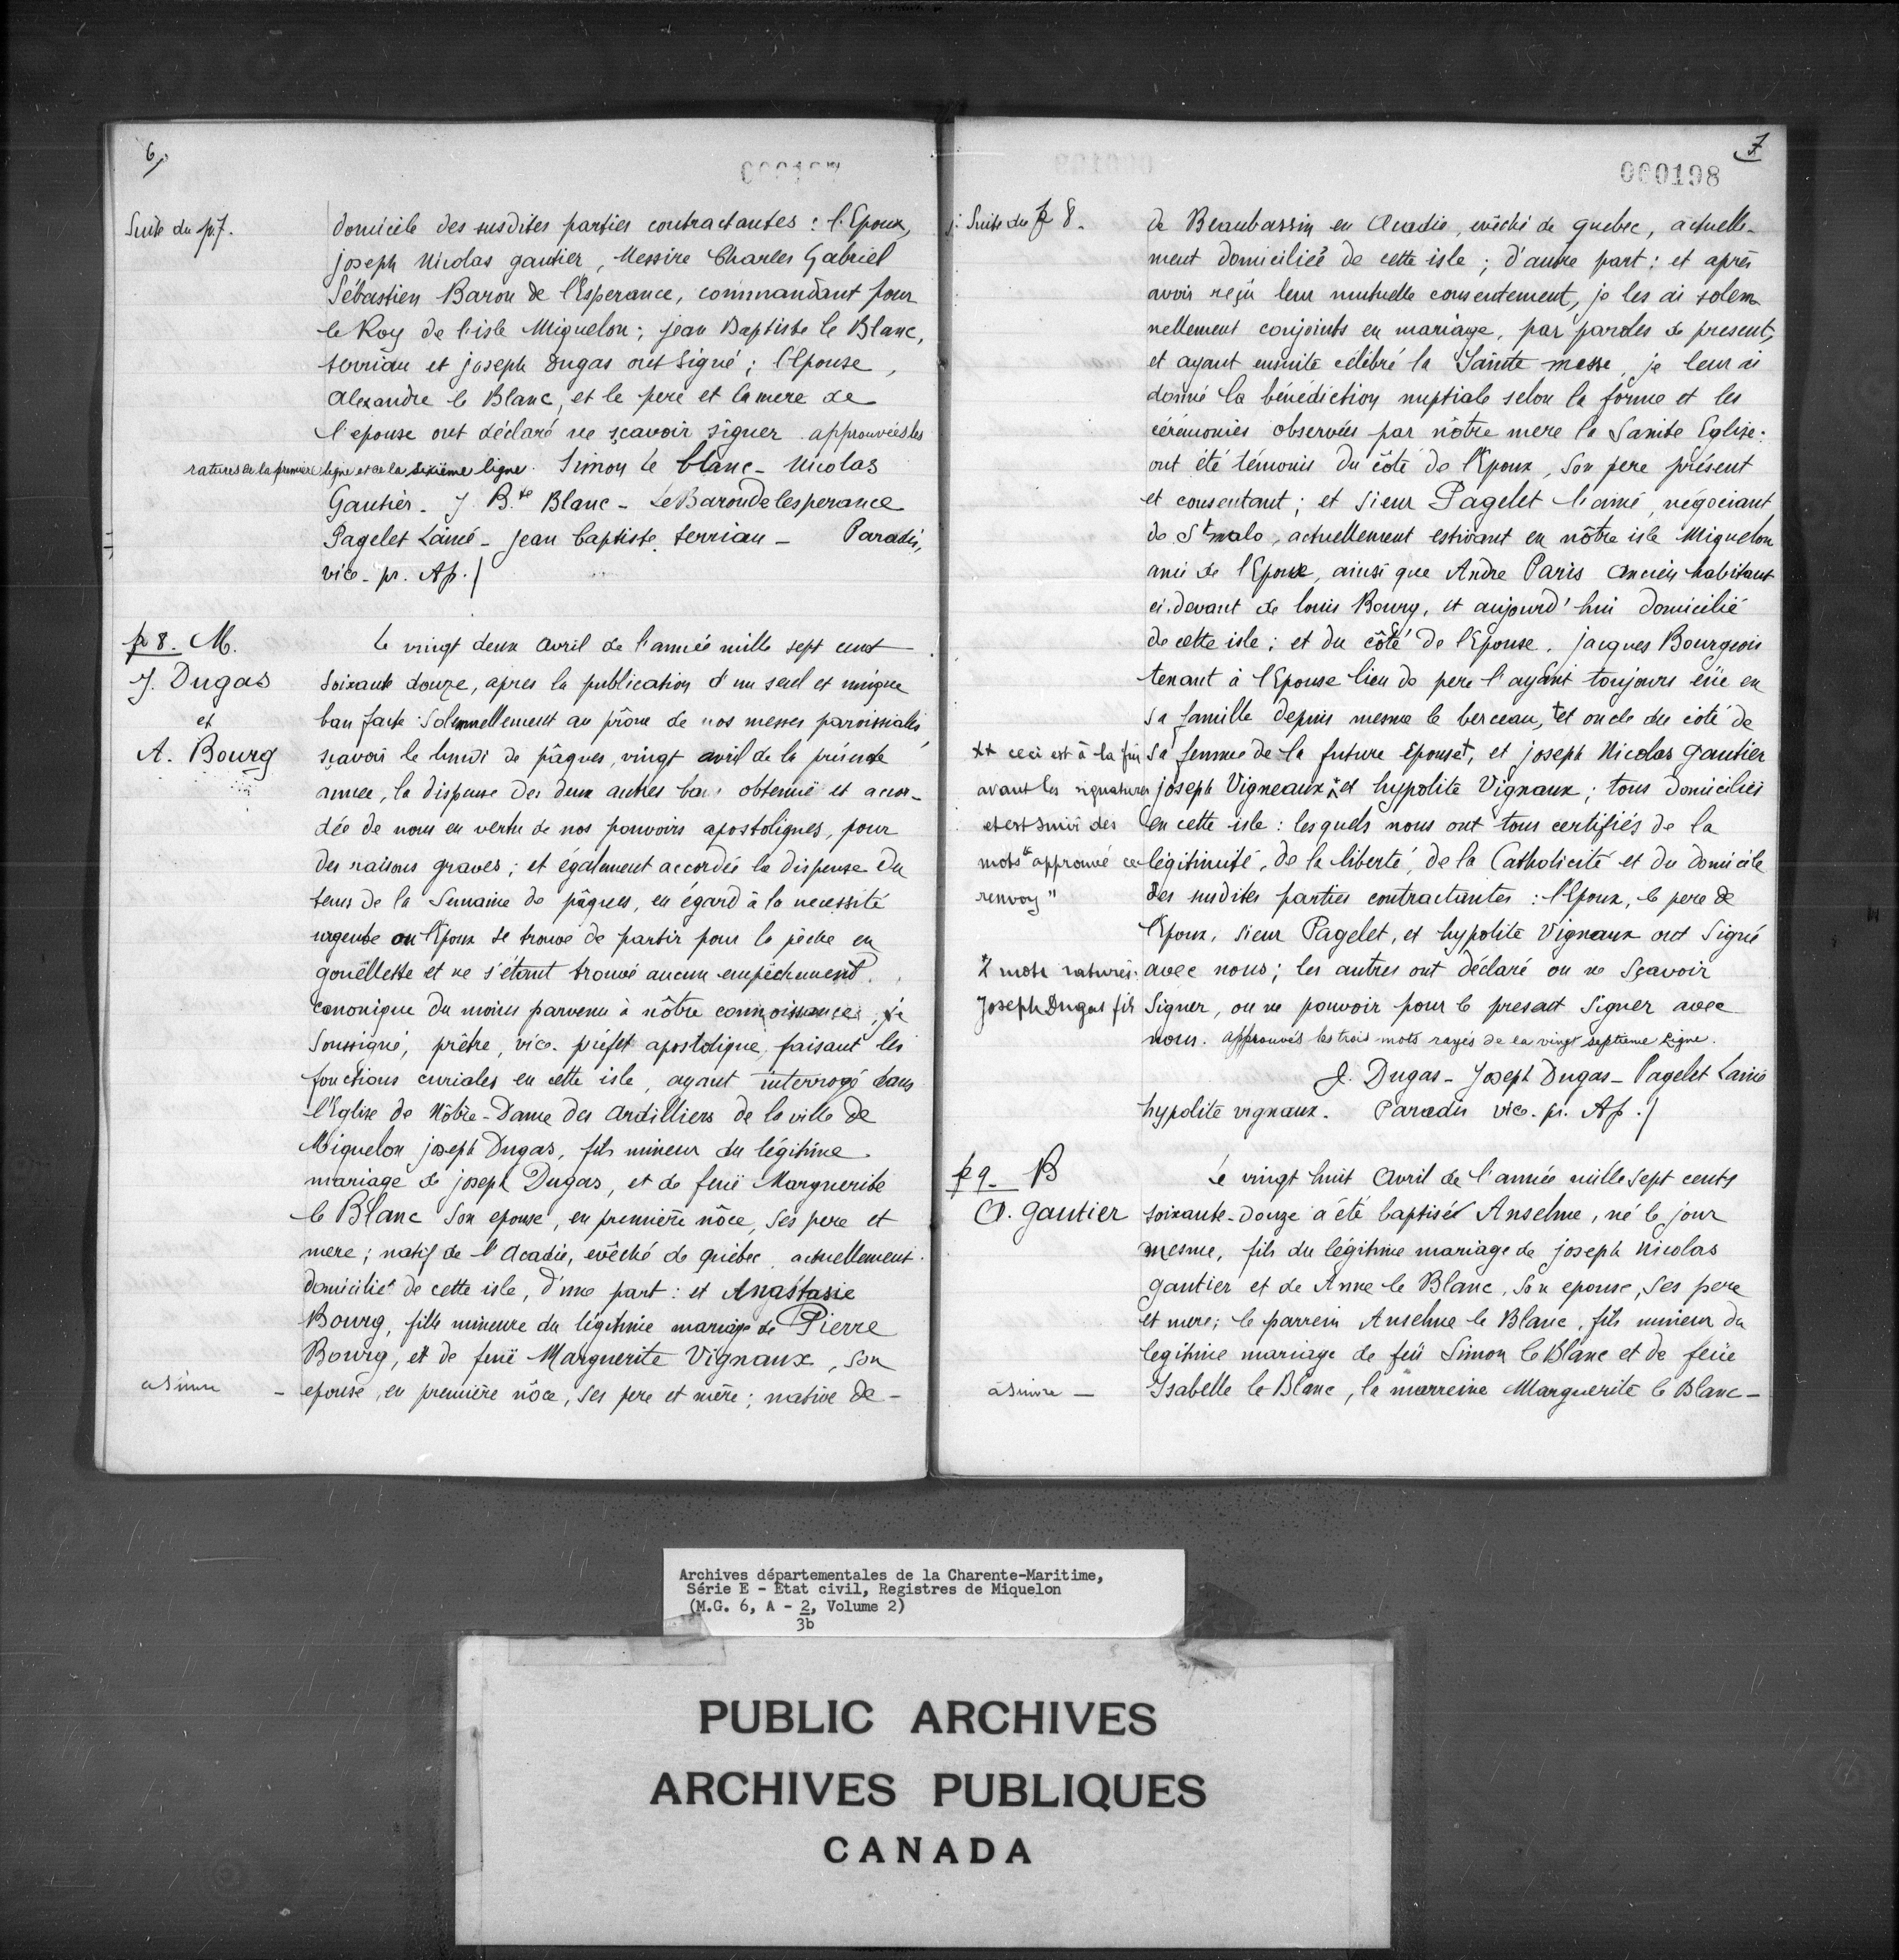 6
Suite du p. 7.
domicile des susdites parties contractantes : l'Epoux,
joseph Nicolas gautier, Messire Charles Gabriel
Sébastien Baron de l'Esperance, commandant pour
le Roy de l'isle Miquelon ; jean Baptiste le Blanc,
terriau et joseph Dugas ont signé ; l'Epouse,
Alexandre le Blanc, et le pere et la mere de
l'epouse ont déclaré ne sçavoir signer approuvées les
ratures de la premiere ligne et de la sixième ligne. Simon le blanc - Nicolas
Gautier - J B.te Blanc - Le Baron de lesperance
Pagelet Lainé - jean baptiste terriau - Paradis,
vice-pr. Ap./
p 8. M.
J. Dugas
et
A. Bourg
Le vingt deux avril de l'année mille sept cent
soixante douze, apres la publication d'un seul et unique
ban faite solemnellement au prône de nos messes paroissiales,
sçavoir le lundi de pâques, vingt avril de la présente
année, la dispense des deux autres bans obtenuë et accor-
dée de nous en vertu de nos pouvoirs apostoliques, pour
des raisons graves ; et également accordée la dispense du
tems de la Semaine de pâques, eu égard à la necessité
urgente ou l'Epoux se trouve de partir pour la pêche en
gouëllette et ne s'étant trouvé aucun empêchement
canonique du moins parvenu à nôtre connoissance ; je
Soussigné, prêtre, vice-préfet apostolique faisant les
fonctions curiales en cette isle, ayant interrogé dans
l'Eglise de Nôtre-Dame des Ardilliers de la ville de
Miquelon joseph Dugas, fils mineur du légitime
mariage de joseph Dugas, et de feuë Marguerite
le Blanc son epouse, en première nôce, ses pere et
mere ; natif de l'Acadie, evêché de quebec actuellement
domicilié de cette isle, d'une part : et Anastasie
Bourg, fille mineure du légitime mariage de Pierre
Bourg, et de feuë Marguerite Vignaux, son
epouse, en première nôce, ses pere et mère ; native de -
à suivre -
7
000198
Suite du p 8.
de Beaubassin en Acadie, evêché de quebec, actuelle-
ment domiciliée de cette isle ; d'autre part : et après
avoir reçu leur mutuelle consentement, je les ai solem
nellement conjoints en mariage, par paroles de present,
et ayant ensuite célébré la Sainte messe, je leur ai
donné la bénédiction nuptiale selon la forme et les
cérémonies observées par nôtre mere la Sainte Eglise :
ont été témoins du côté de l'Epoux, son pere présent
et consentant ; et sieur Pagelet l'ainé, négociant,
de St malo, actuellement estivant en nôtre isle Miquelon
ami de l'Epoux, ainsi que Andre Paris ancien habitant
ci-devant de louis Bourg, et aujourd'hui domicilié
de cette isle ; et du côté de l'Epouse, jacques Bourgeois
tenant à l'Epouse lieu de pere l'ayant toujours eüe en
sa famille depuis mesme le berceau, + et oncle du côté de
sa femme de la future epouse +, et joseph Nicolas gautier
joseph Vigneaux ++ et hypolite Vignaux ; tous domiciliés
en cette isle : lesquels nous ont tous certifiés de la
légitimité, de la liberté, de la Catholicité et du domicile
des susdites parties contractantes : l'Epoux, le pere de
l'Epoux, sieur Pagelet, et hypolite Vignaux ont signé
avec nous ; les autres ont déclaré ou ne sçavoir
signer, ou ne pouvoir pour le present signer avec
nous. approuvés les trois mots rayés de la vingt septieme Ligne.
++ ceci est à la fin
avant les signatures
et est suivi des
mots "approuvé ce
renvoy"
2 mots raturés
Joseph Dugas fils
J. Dugas - Joseph Dugas - Pagelet Lainé
hypolite vignaux. Paradis vice-pr. Ap./
p 9. B
A. gautier
Le vingt huit Avril de l'année mille sept cents
soixante-douze a été baptisé Anselme, né le jour
mesme, fils du légitime mariage de joseph Nicolas
gautier et de Anne le Blanc, son epouse, ses pere
et mere ; le parrein Anselme le Blanc, fils mineur du
legitime mariage de feü Simon le Blanc et de feüe
Isabelle le Blanc, la marreine Marguerite le Blanc -
à suivre -
Archives départementales de la Charente-Maritime,
Série E - Etat civil, Registres de Miquelon
(M.G. 6, A - 2, Volume 2)
3b
PUBLIC ARCHIVES
ARCHIVES PUBLIQUES
CANADA